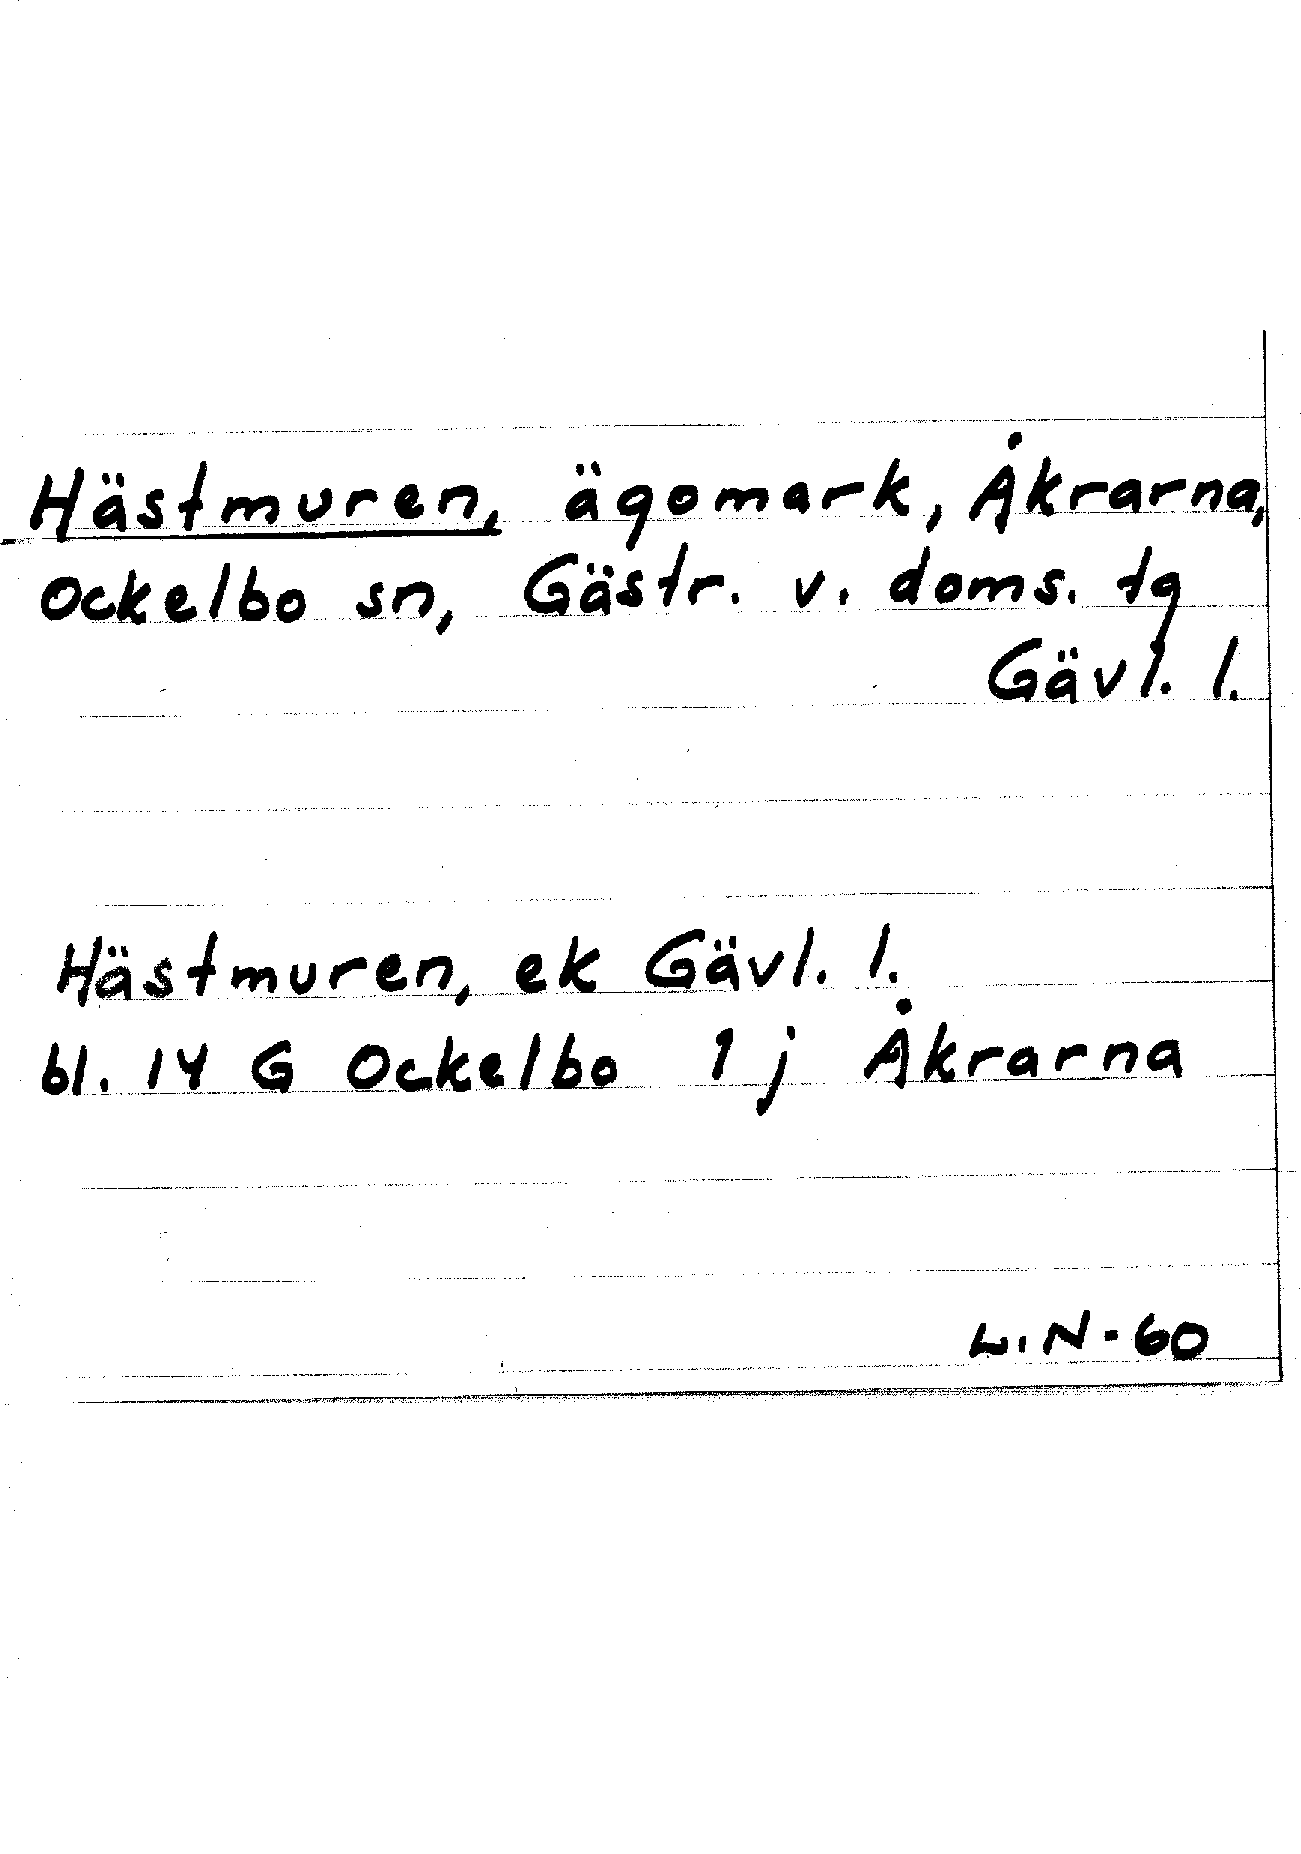 Hästmuren, ägomark, Åkrarna,
Ockelbo sn, Gästr. v. doms. tg
Gävl. l.
Hästmuren, ek Gävl. l.
bl. 14 G Ockelbo 1 j Åkrarna
L.N-60